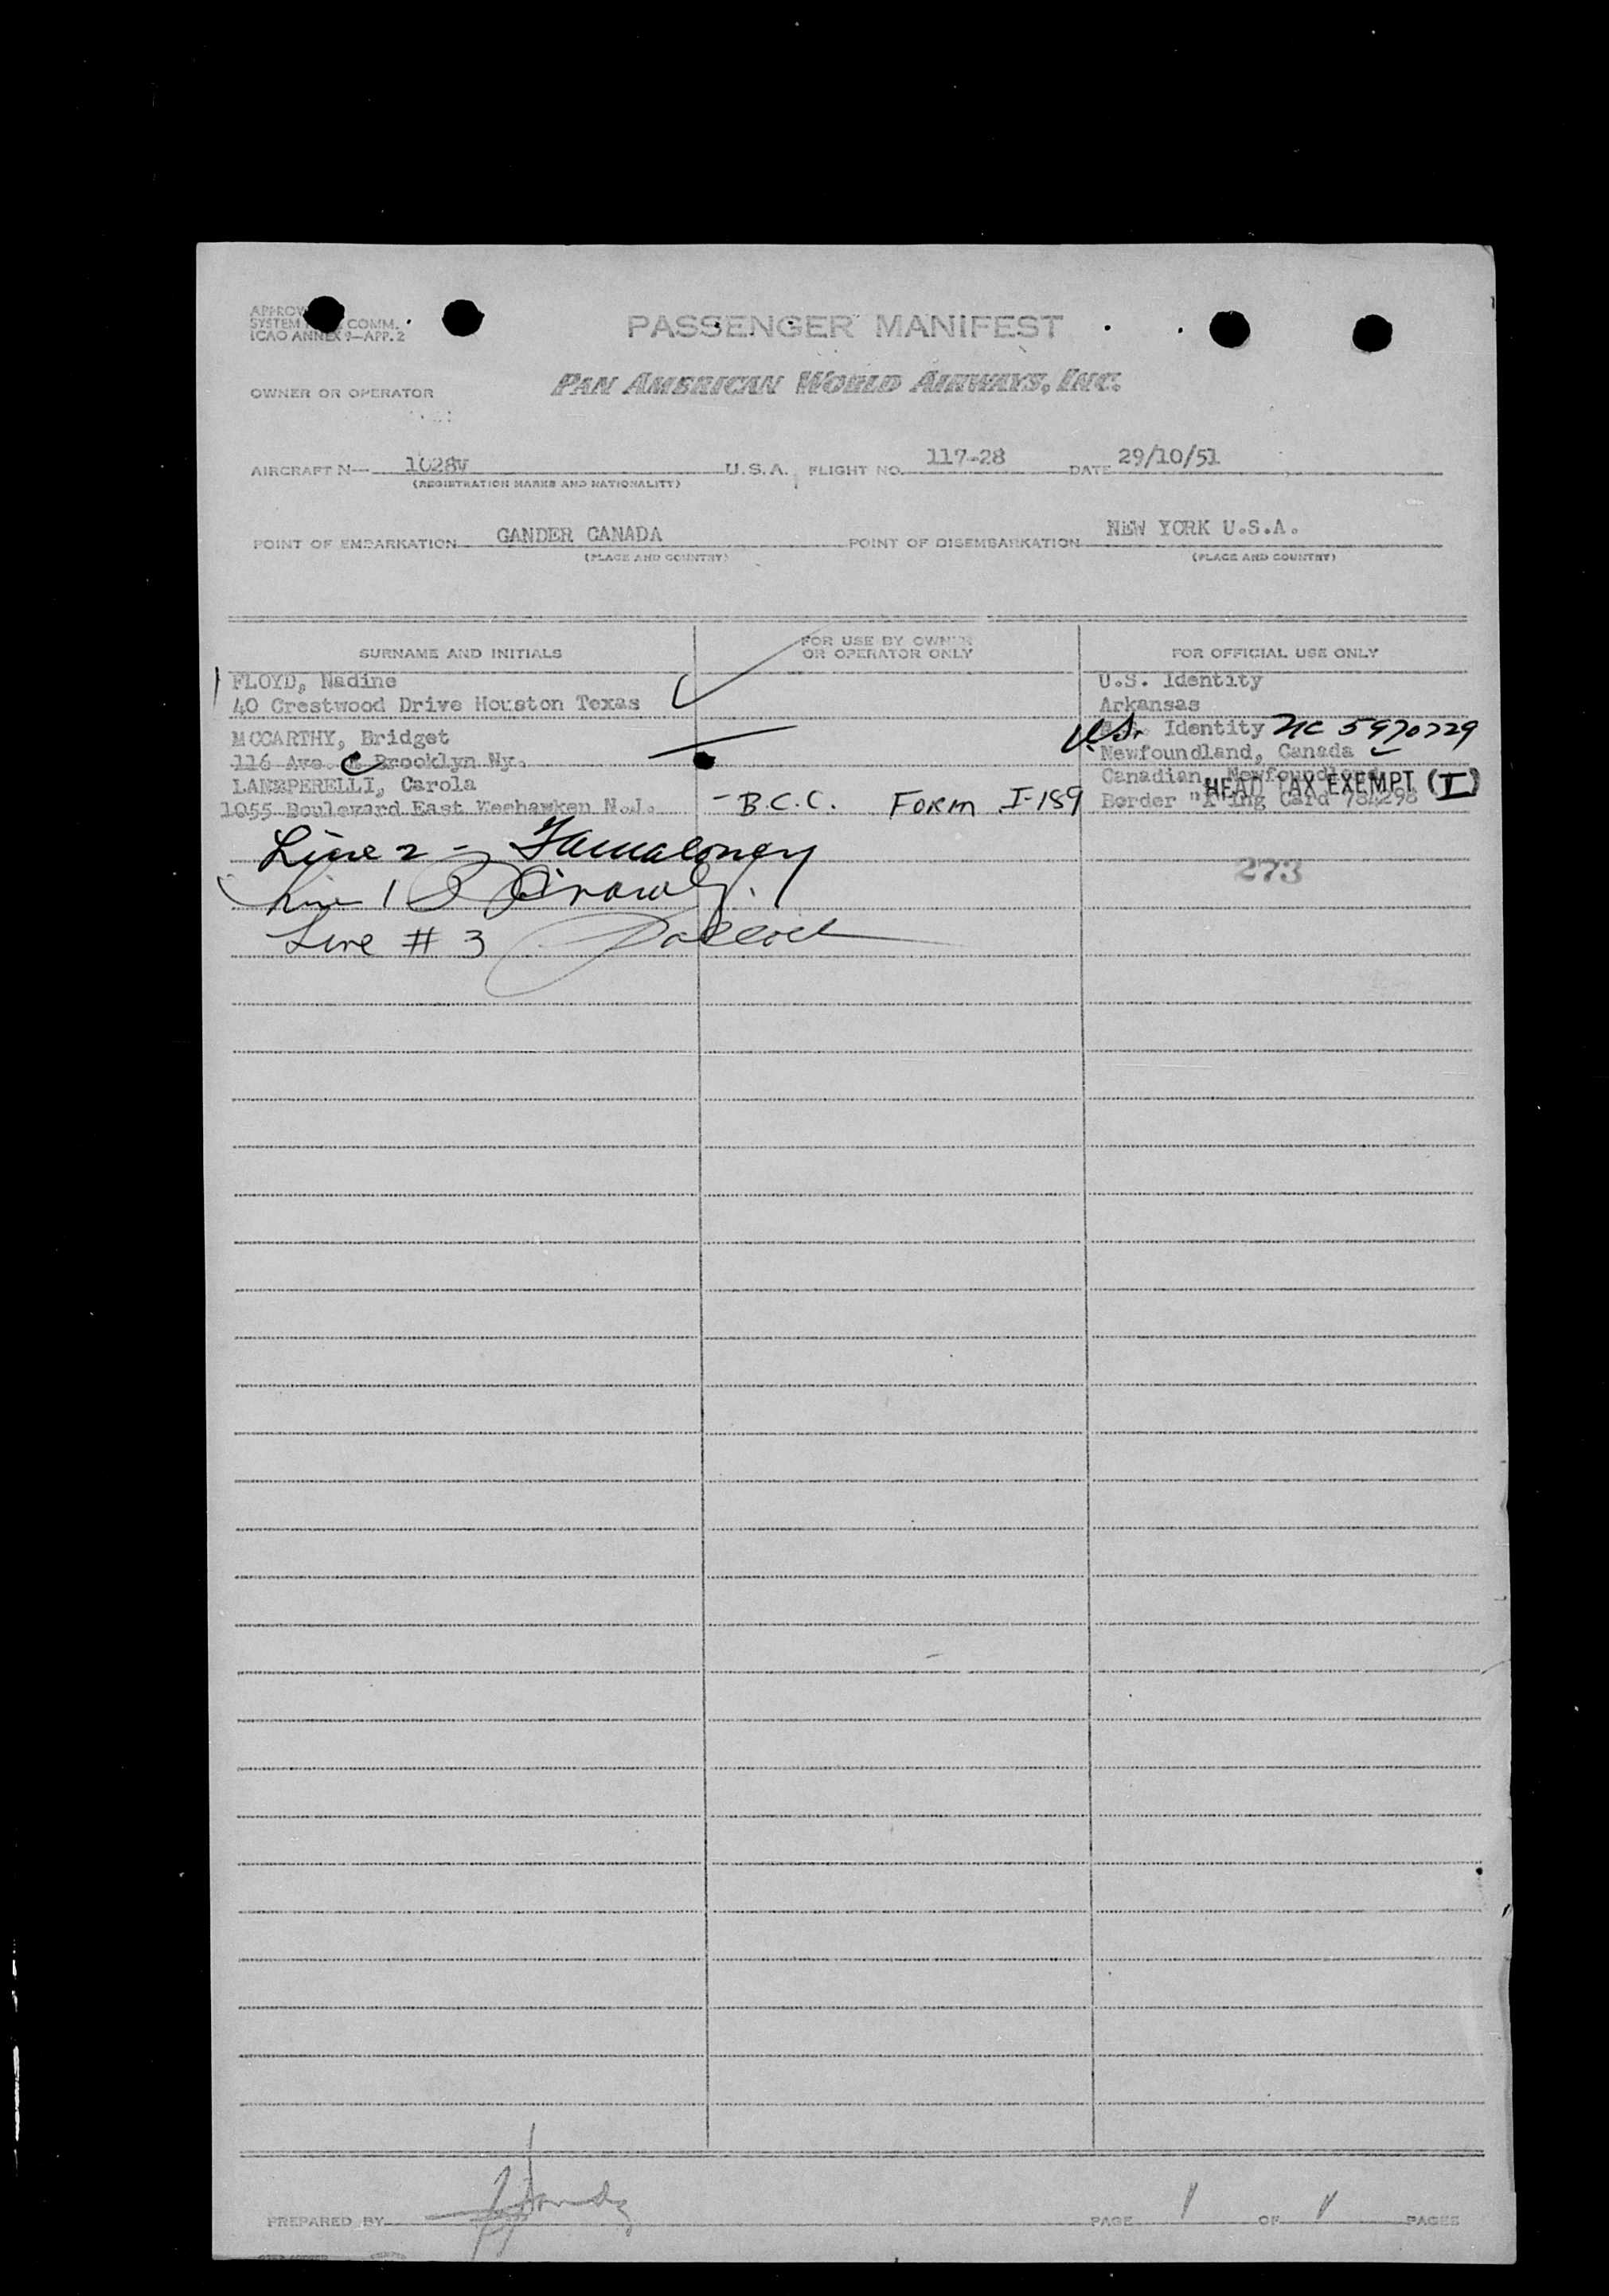 SYSTEM COMM.
ICAO ANNEX 9—APP. 2
PASSENGER MANIFEST
OWNER OR OPERATOR PAN AMERICAN WORLD AIRWAYS, INC.
AIRCRAFT N— 1028V U.S.A. FLIGHT NO. 117-28 DATE 29/10/51
(REGISTRATION MARKS AND NATIONALITY)
POINT OF EMBARKATION GANDER CANADA POINT OF DISEMBARKATION NEW YORK U.S.A.
(PLACE AND COUNTRY) (PLACE AND COUNTRY)
SURNAME AND INITIALS FOR USE BY OWNER OR OPERATOR ONLY FOR OFFICIAL USE ONLY
FLOYD, Nadine U.S. Identity
40 Crestwood Drive Houston Texas Arkansas
MCCARTHY, Bridget U.S. Identity NC 5970729
116 Ave. C Brooklyn Ny. Newfoundland, Canada
Carola Canadian, Newfoundland
HEAD TAX EXEMPT (I)
1055 Boulevard East Weehawken N.J. - B.C.C. FORM I-189 Border "X"ing Card 784298
Line 2 -
273
Line 1
Line # 3
PREPARED BY PAGE 1 OF 1 PAGES